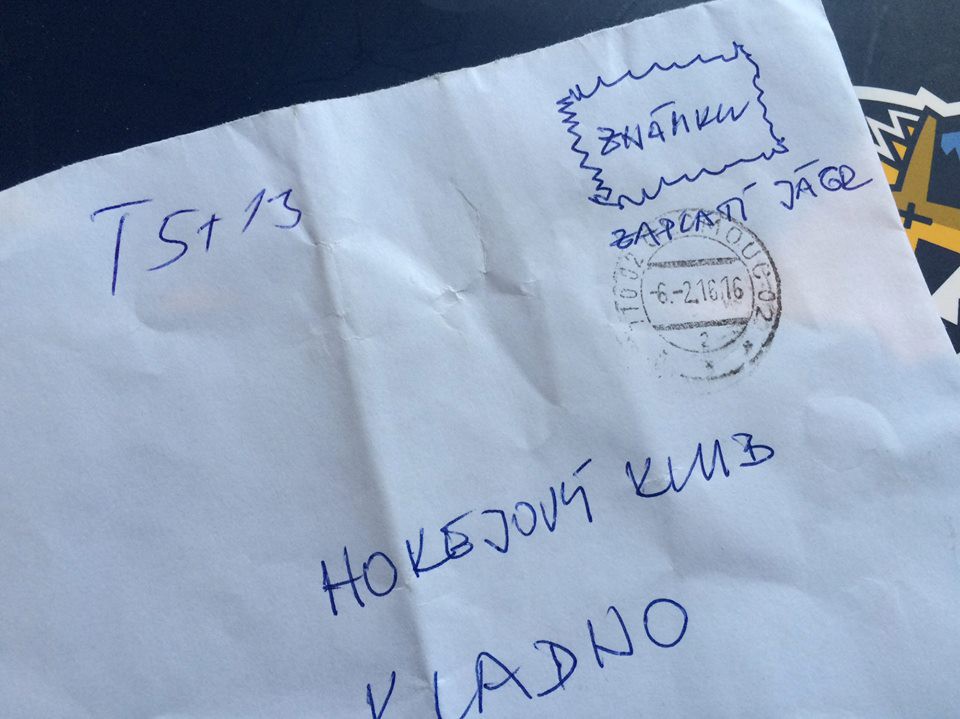 ZNÁMKU
ZAPLATÍ JÁGR
T 5+13
OLOMOUC 02
-6.-2.16.16
2
HOKEJOVÝ KLUB
KLADNO